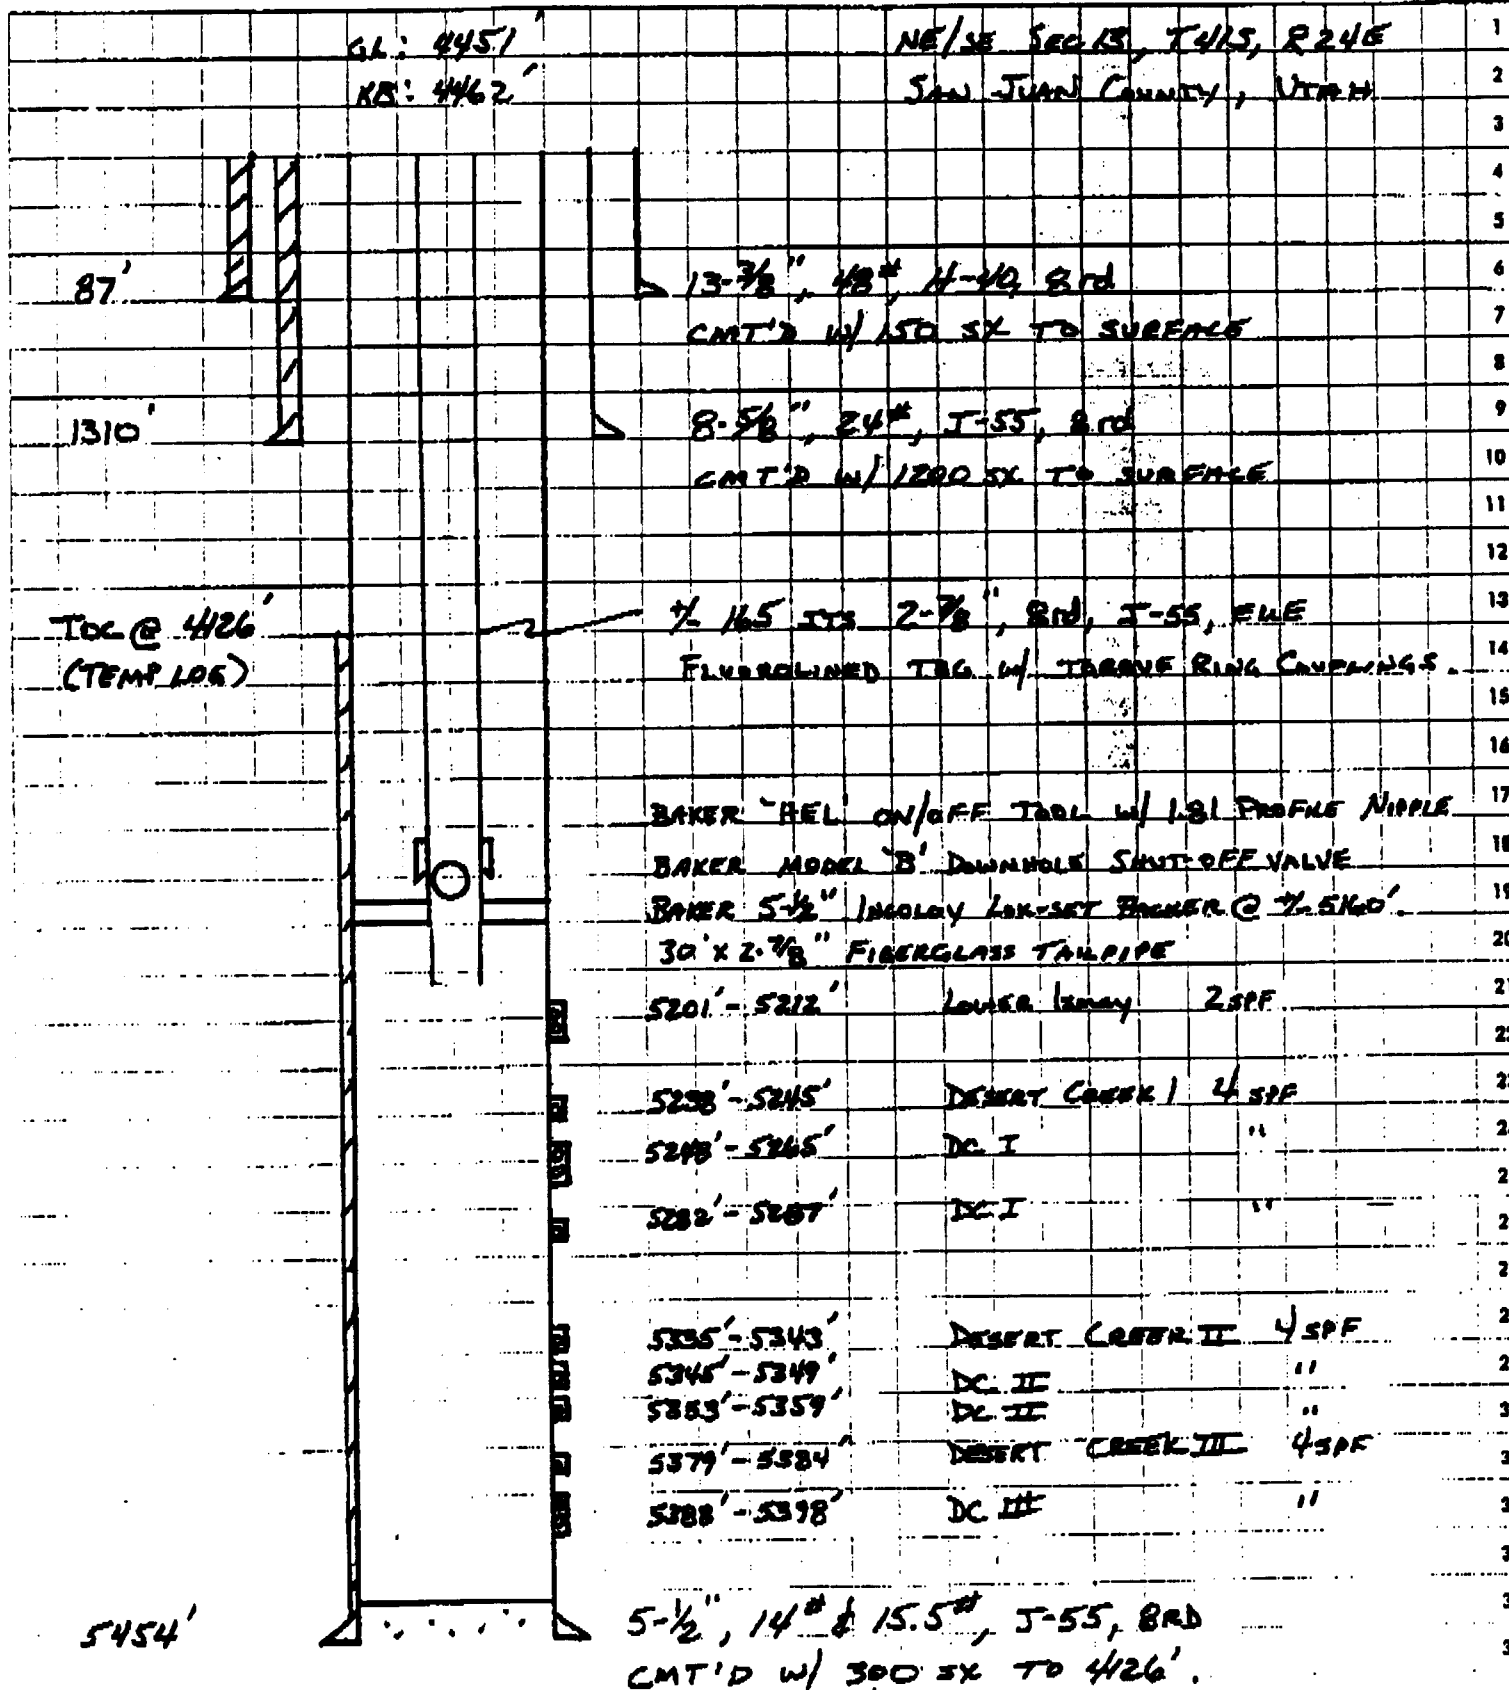 GL: 4451'
NE/SE SEC 13, T41S, R24E
KB: 4462'
SAN JUAN COUNTY, UTAH
87'
13-3/8", 48#, H-40, 8rd
CMT'D W/ 150 SX TO SURFACE
1310'
8-5/8", 24#, J-55, 8rd
CMT'D W/ 1200 SX TO SURFACE
TOC @ 4126'
(TEMP LOG)
+/- 165 JTS 2-7/8", 8rd, J-55, EUE
FLUOROLINED TBG W/ TORQUE RING COUPLINGS.
BAKER 'HEL' ON/OFF TOOL W/ 1.81 PROFILE NIPPLE
BAKER MODEL 'B' DOWNHOLE SHUT-OFF VALVE
BAKER 5-1/2" INCOLOY LOK-SET PACKER @ +/- 5160'.
30' X 2-7/8" FIBERGLASS TAILPIPE
5201'-5212' LOWER ISMAY 2 SPF
5238'-5245' DESERT CREEK I 4 SPF
5248'-5265' DC I "
5282'-5287' DC I "
5335'-5343' DESERT CREEK II 4 SPF
5345'-5349' DC II "
5353'-5359' DC II "
5379'-5384' DESERT CREEK III 4 SPF
5388'-5398' DC III "
5454'
5-1/2", 14# & 15.5#, J-55, 8RD
CMT'D W/ 300 SX TO 4126'.
1
2
3
4
5
6
7
8
9
10
11
12
13
14
15
16
17
18
19
20